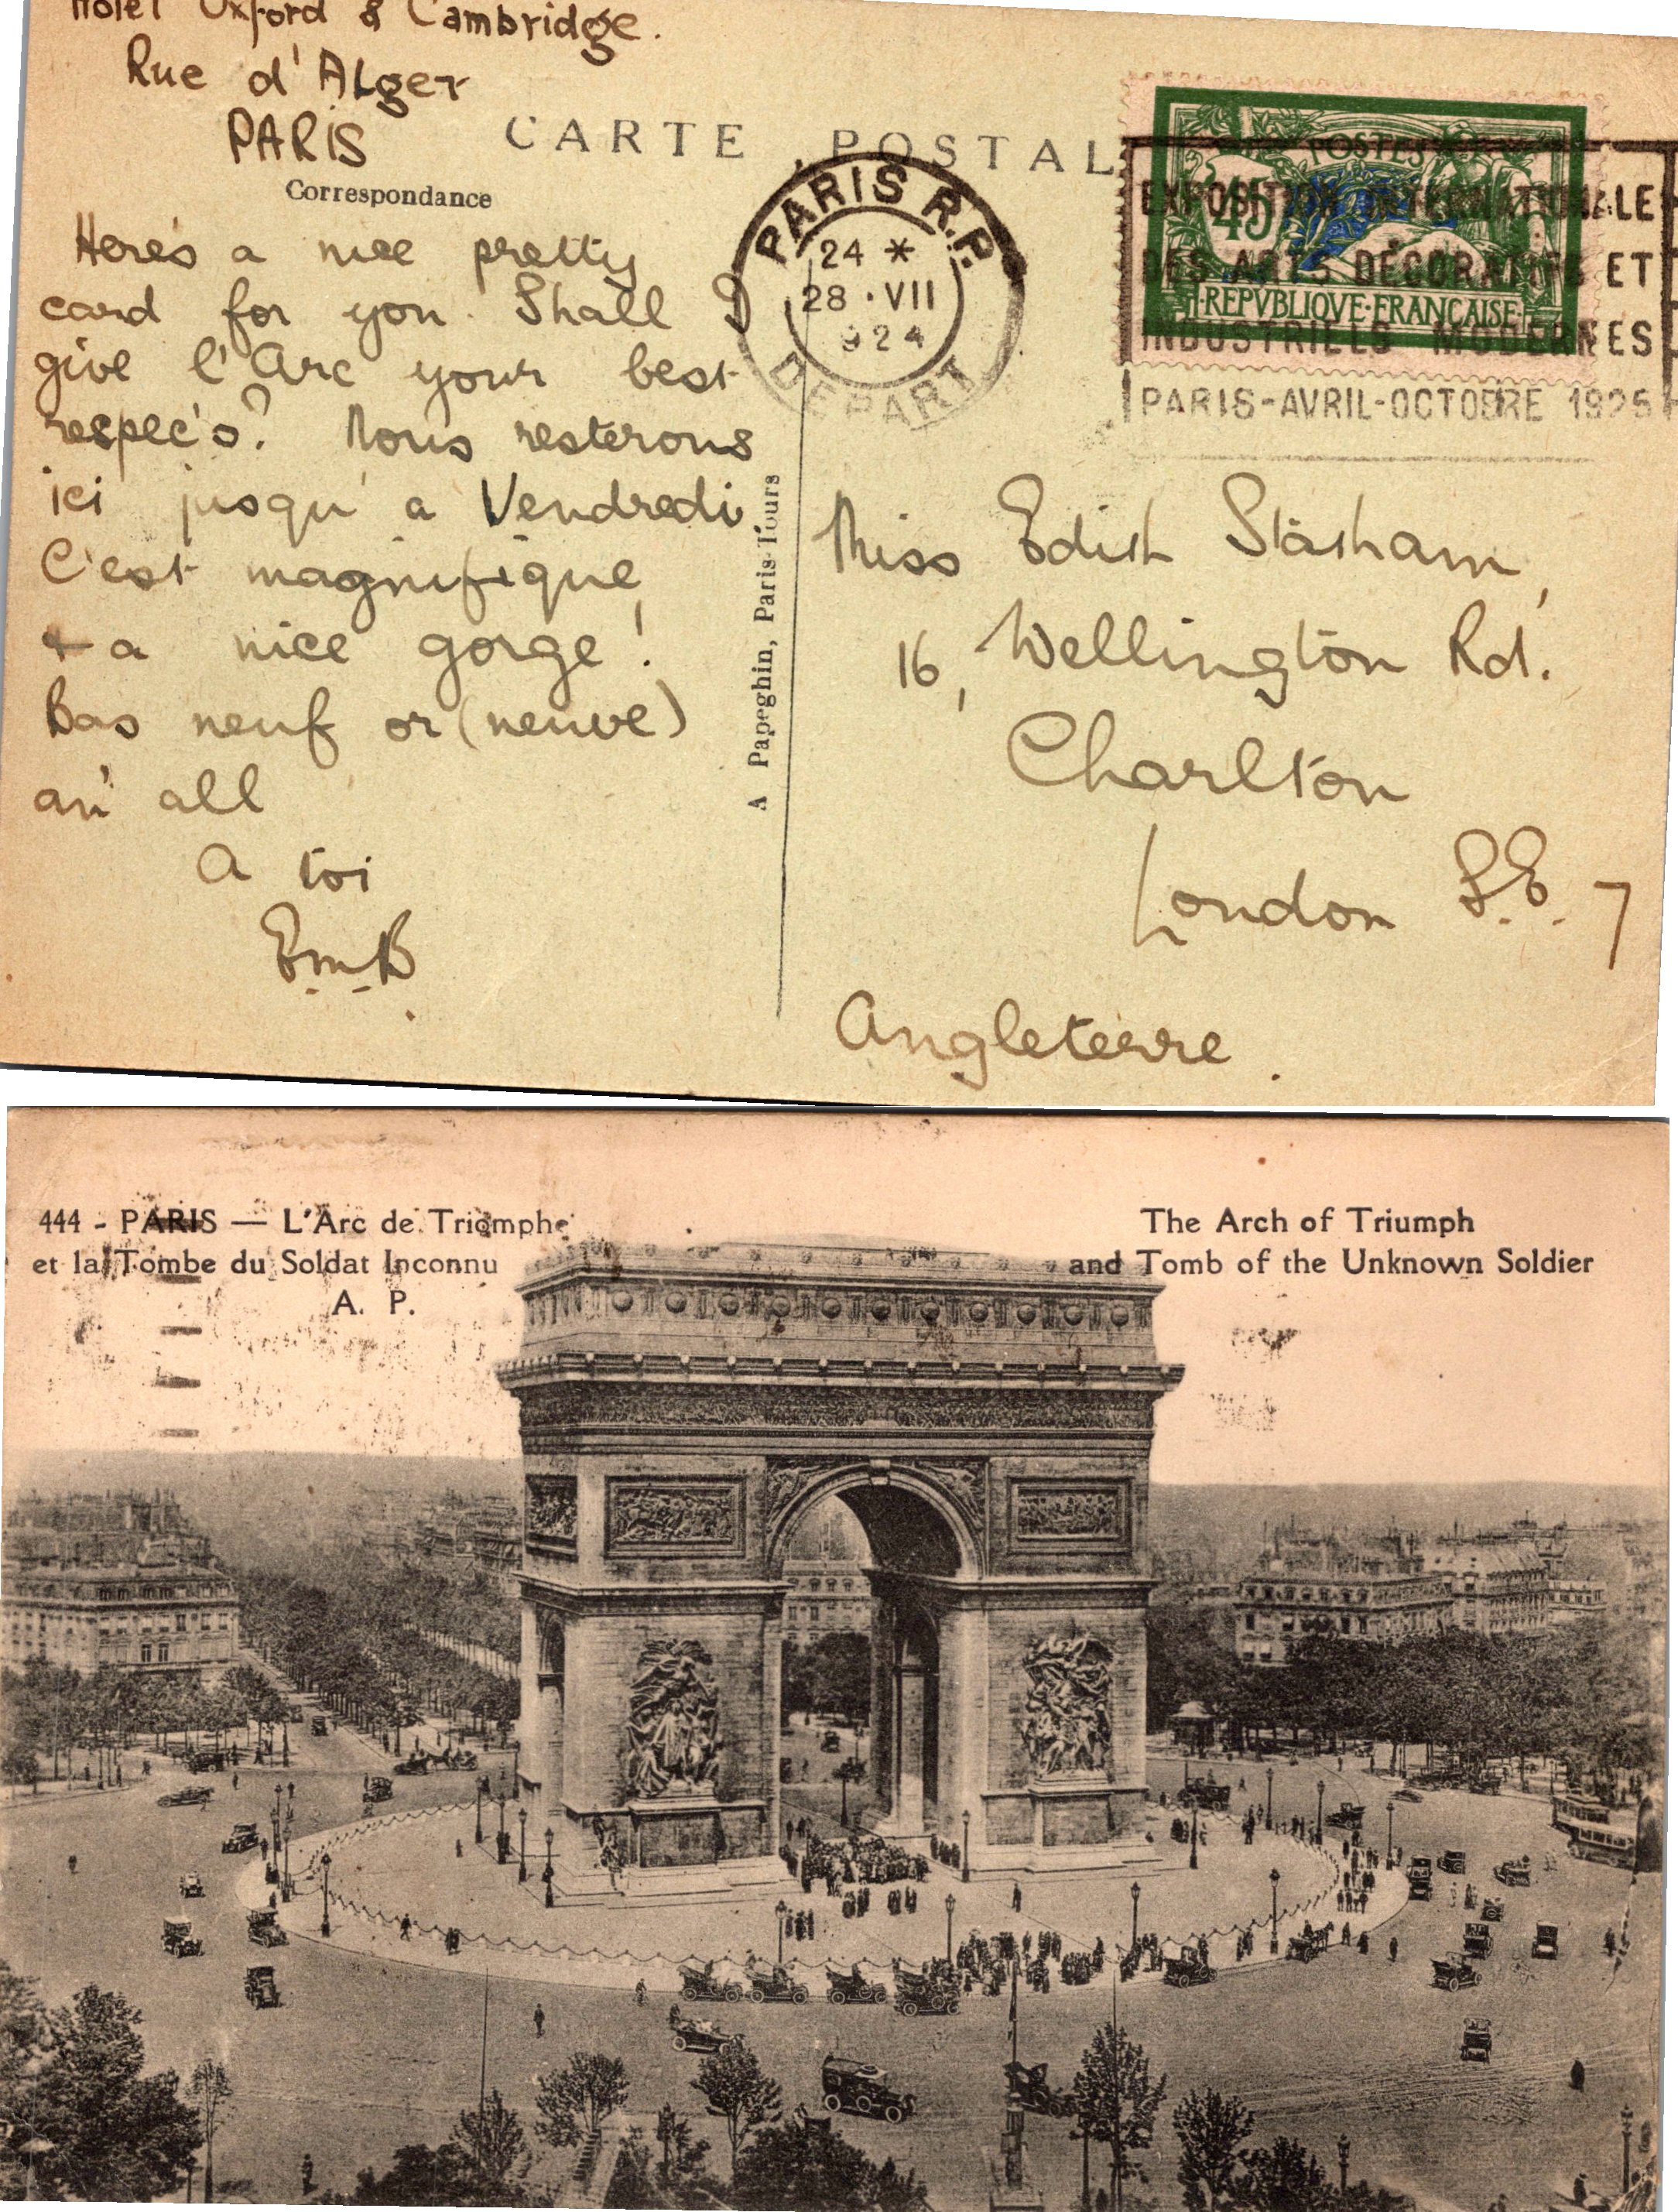 Hotel Oxford & Cambridge.
Rue d'Alger
PARIS
CARTE POSTAL
Correspondance
Here's a nice pretty
card for you. Shall I
give l'Arc your best
respec's? Nous resterons
ici jusqu'a Vendredi
C'est magnifique,
+ a nice gorge!
Bas neuf or (neuve)
an' all
A toi
E.M.B.
A Papeghin, Paris-Tours
PARIS R.P.
24 *
28 · VII
924
DEPART
POSTES
45
REPVBLIQVE·FRANCAISE
EXPOSITION INTERNATIONALE
DES ARTS DÉCORATIFS ET
INDUSTRIELS MODERNES
PARIS-AVRIL-OCTOBRE 1925
Miss Edith
16, Wellington Rd.
Charlton
London S.E. 7
Angleterre.
444 - PARIS — L'Arc de Triomphe
et la Tombe du Soldat Inconnu
A. P.
The Arch of Triumph
and Tomb of the Unknown Soldier